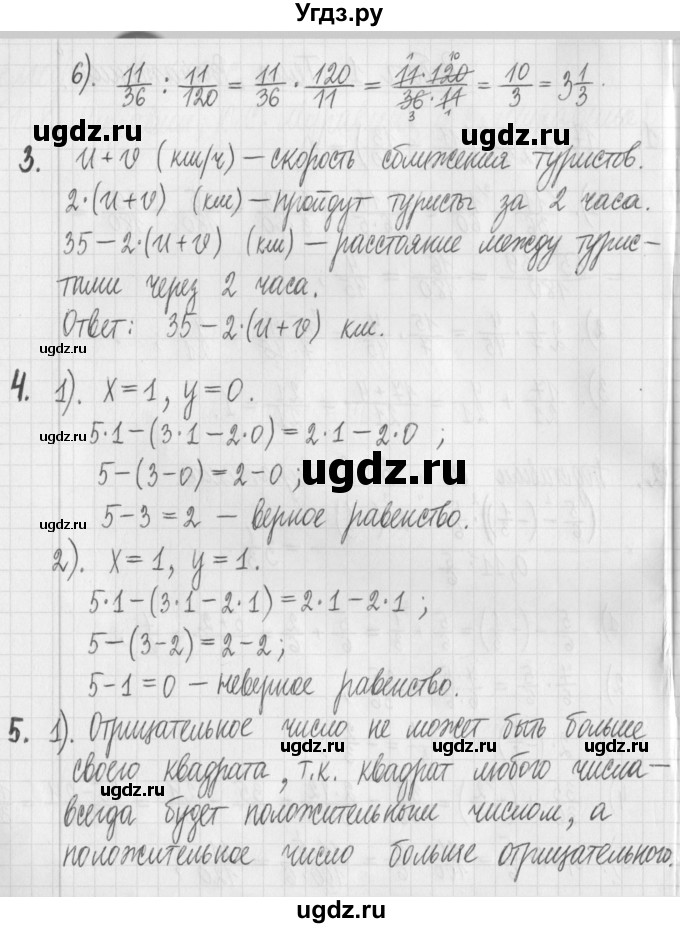 Угдз.ру
6). 11/36 : 11/120 = 11/36 · 120/11 = 11·120/36·11 = 10/3 = 3 1/3.
3. u+v (км/ч) – скорость сближения туристов.
2·(u+v) (км) – пройдут туристы за 2 часа.
35 – 2·(u+v) (км) – расстояние между турис-
тами через 2 часа.
Ответ: 35 – 2·(u+v) км.
4. 1). x=1, y=0.
5·1–(3·1–2·0)=2·1–2·0 ;
5–(3–0)=2–0 ;
5–3=2 – верное равенство.
2). x=1, y=1.
5·1–(3·1–2·1)=2·1–2·1 ;
5–(3–2)=2–2;
5–1=0 – неверное равенство.
5. 1). Отрицательное число не может быть больше
своего квадрата, т.к. квадрат любого числа–
всегда будет положительным числом, а
положительное число больше отрицательного.
ugdz.ru